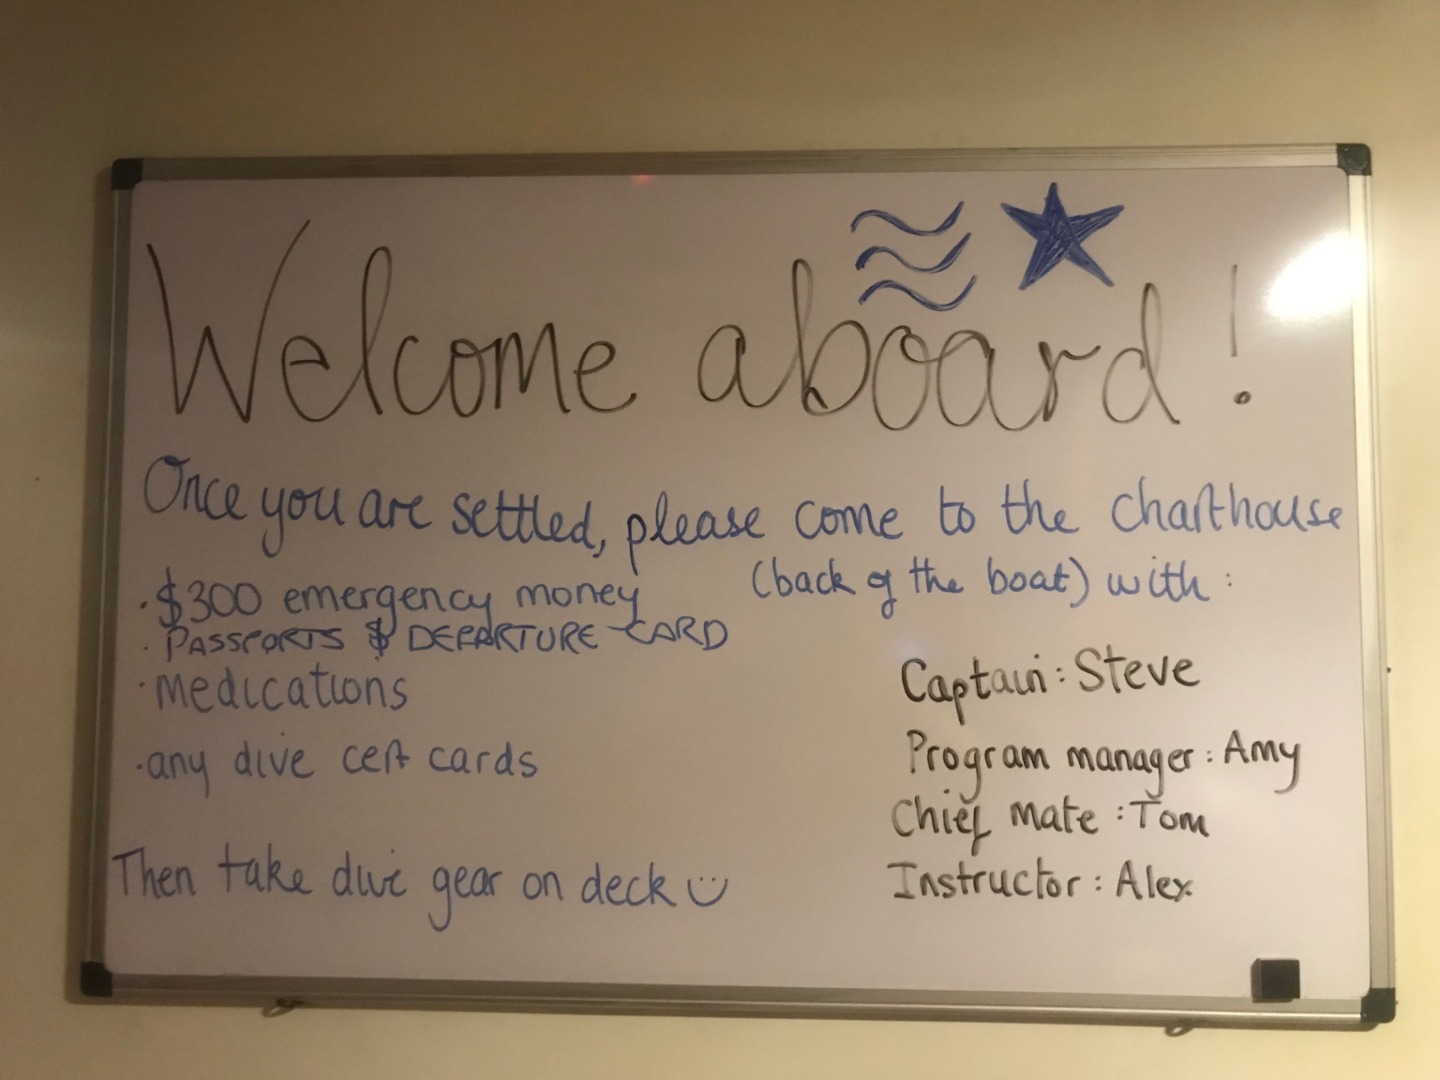 Welcome aboard!
Once you are settled, please come to the charthouse
(back of the boat) with:
· $300 emergency money
· PASSPORTS & DEPARTURE CARD
· medications
· any dive cert cards
Then take dive gear on deck
Captain: Steve
Program manager: Amy
Chief mate: Tom
Instructor: Alex